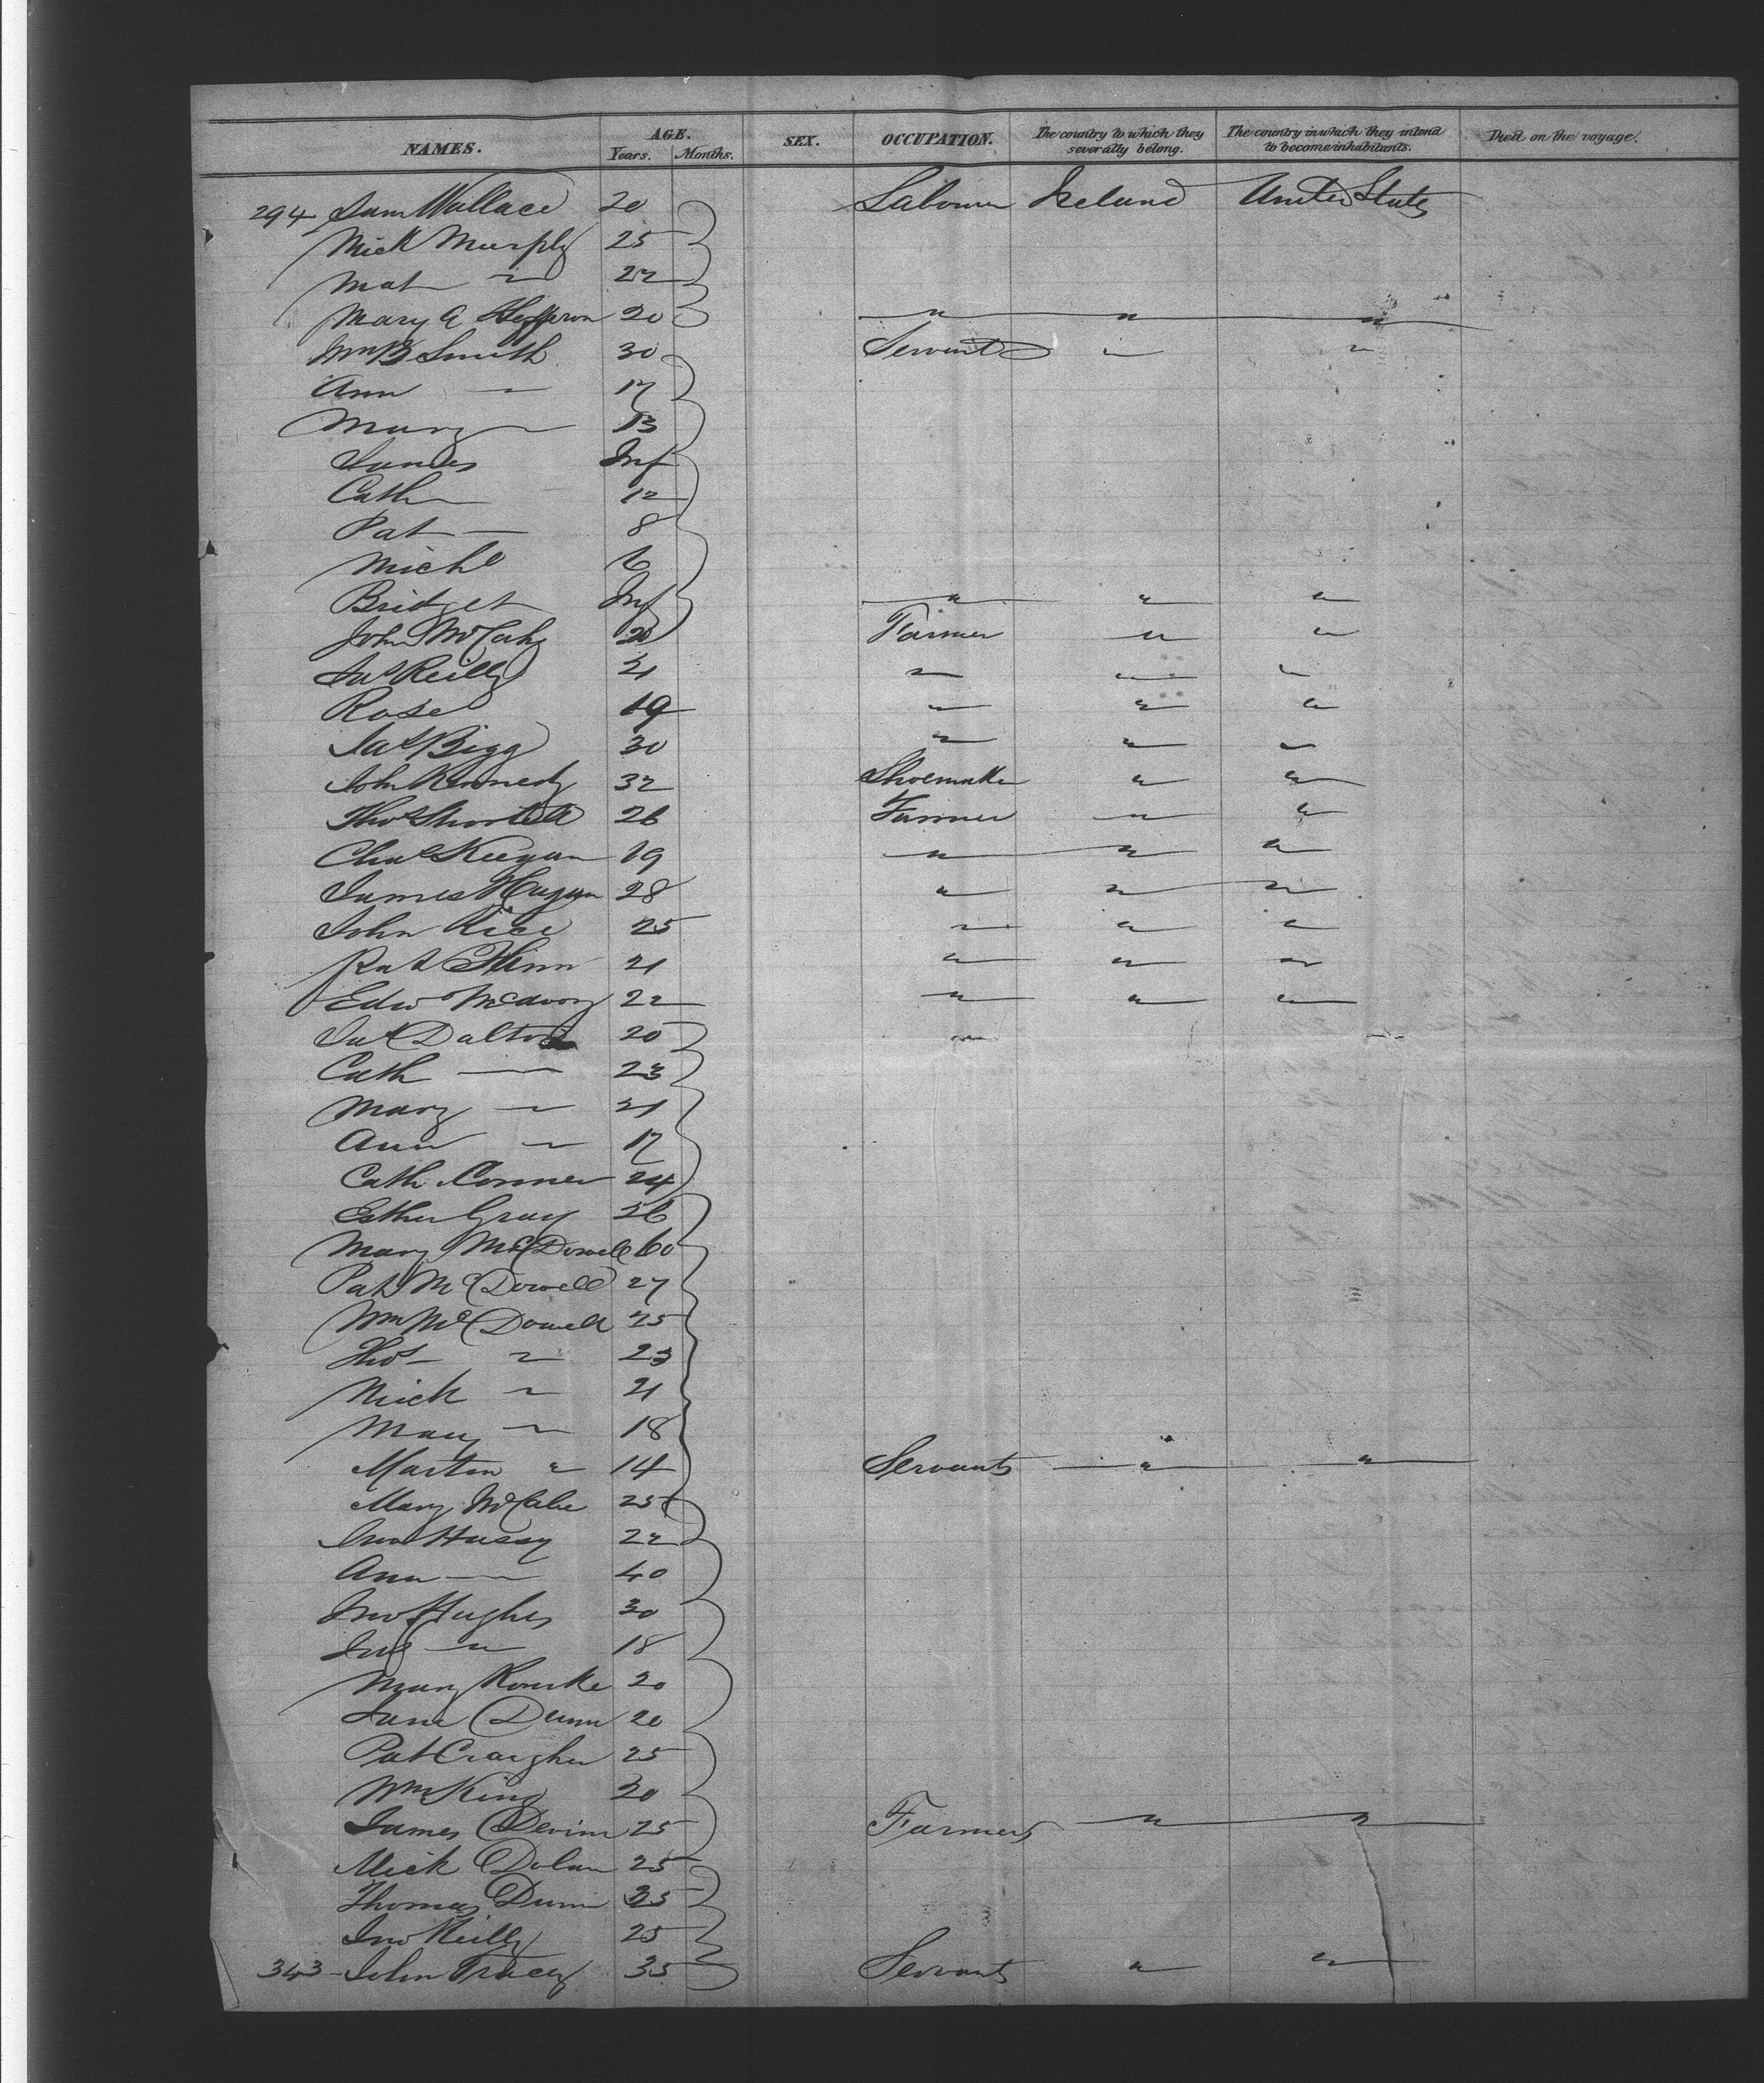 NAMES. AGE. Years. Months. SEX. OCCUPATION. The country to which they severally belong. The country in which they intend to become inhabitants. Died on the voyage.
294 Sam Wallace 20 Labourer Ireland United States
Mick Murphy 25
Mat " 22
Mary A Heffron 20 " " "
Wm B Smith 30 Servants " "
Ann — 17
Mary — 13
James Inf
Cath — 12
Pat — 8
Michl 6
Bridget Inf " " "
John McCahy 20 Farmer " "
Jas Reilly 21 " " "
Rose 19 " " "
Jas Bigg 30 " " "
John Kennedy 32 Shoemaker " "
Thos Shortell 26 Farmer " "
Chas Keegan 19 " " "
James Hagan 28 " " "
John Rice 25 " " "
Pat Flinn 21 " " "
Edwd McEvoy 22 " " "
Jas Dalton 20 " "
Cath — 23
Mary — 21
Ann — 17
Cath Conner 24
Esther Gray 26
Mary McDowell 60
Pat McDowell 27
Wm McDowell 25
Thos — " 23
Mick " 21
Mary " 18
Martin " 14 Servants " "
Mary McCabe 25
Jno Hussy 22
Ann — 40
Jno Hughes 30
Jas " 18
Mary Rourke 20
Jane Dunn 20
Pat Craigher 25
Wm King 20
James Devine 25 Farmers " "
Mick Dolan 25
Thomas Dunn 25
Jno Reilly 25
343 - John Tracey 35 Servants " "